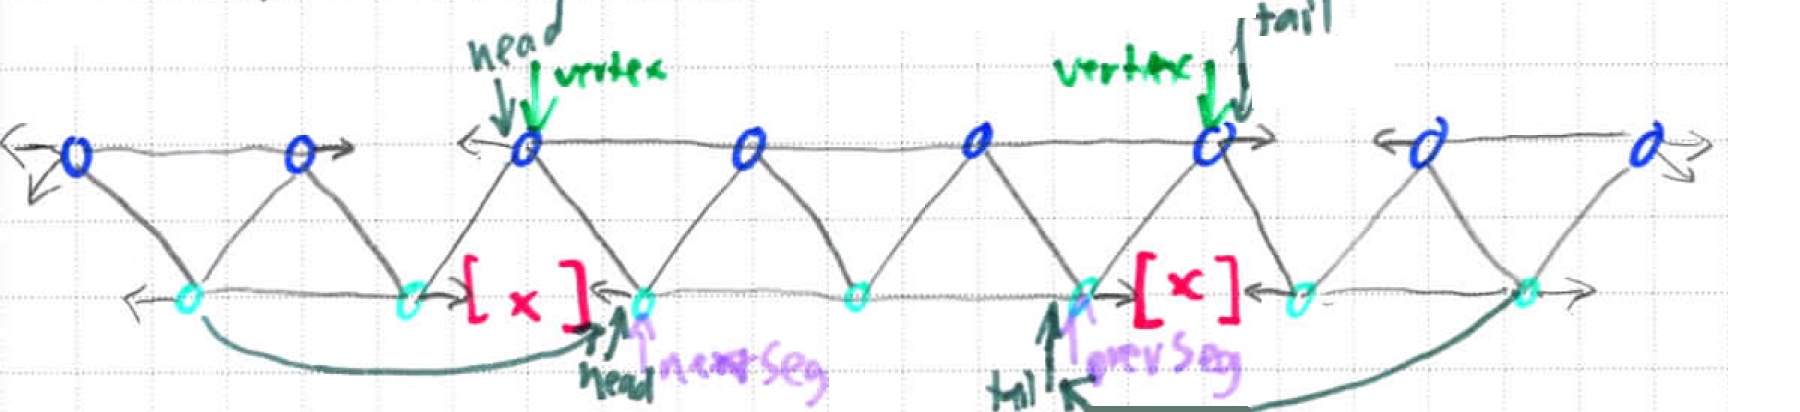 head
tail
vertex
vertex
[ x ]
[ x ]
head
nextSeg
tail
prevSeg